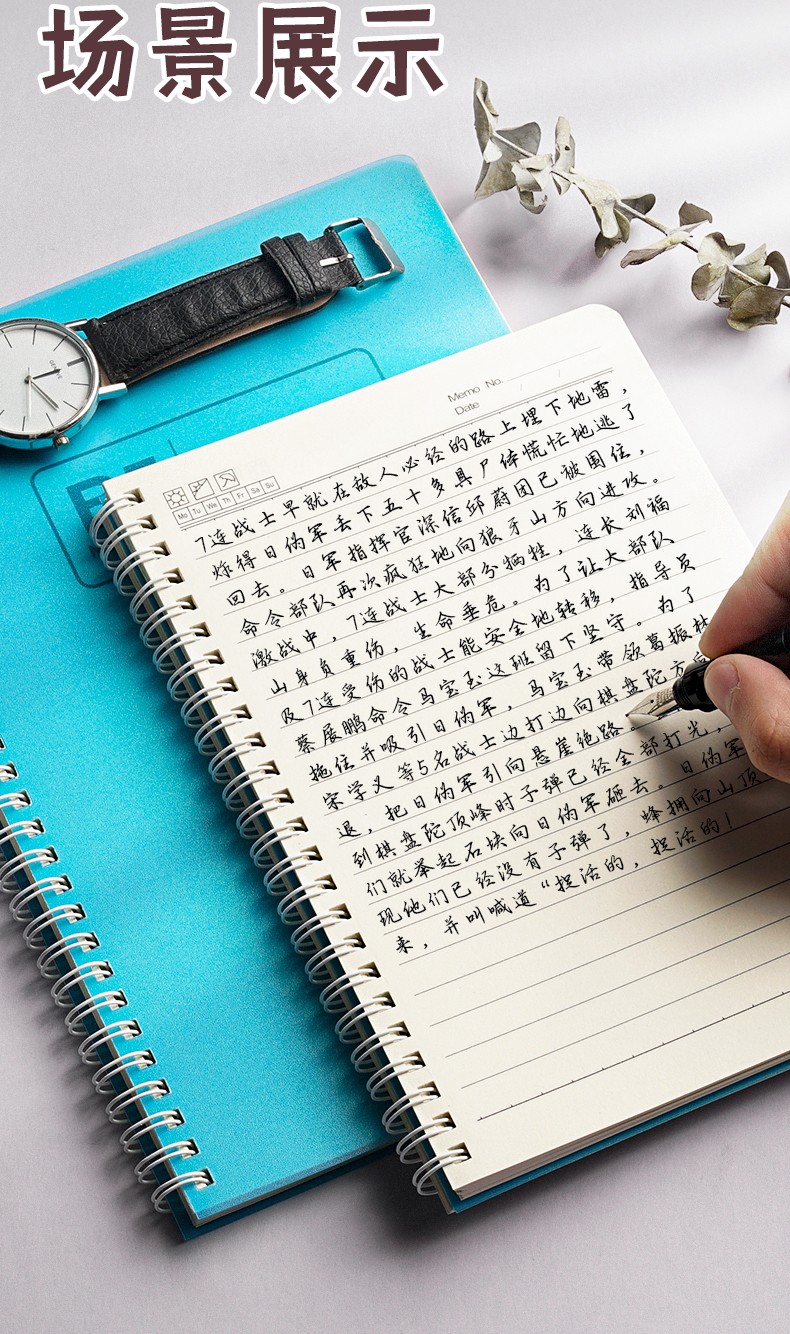 场景展示
Memo No.
Date
Mo Tu We Th Fr Sa Su
7连战士早就在敌人必经的路上埋下地雷，
炸得日伪军丢下五十多具尸体慌忙地逃了
回去。日军指挥官深信邱蔚团已被围住，
命令部队再次疯狂地向狼牙山方向进攻。
激战中，7连战士大部分牺牲，连长刘福
山身负重伤，生命垂危。为了让大部队
及7连受伤的战士能安全地转移，指导员
蔡展鹏命令马宝玉这班留下坚守。为了
拖住并吸引日伪军，马宝玉带领葛振林
宋学义等5名战士边打边向棋盘陀方向
退，把日伪军引向悬崖绝路。
到棋盘陀顶峰时子弹已经全部打光，
们就举起石块向日伪军砸去。日伪军
现他们已经没有子弹了，蜂拥向山顶
来，并叫喊道“捉活的，捉活的！